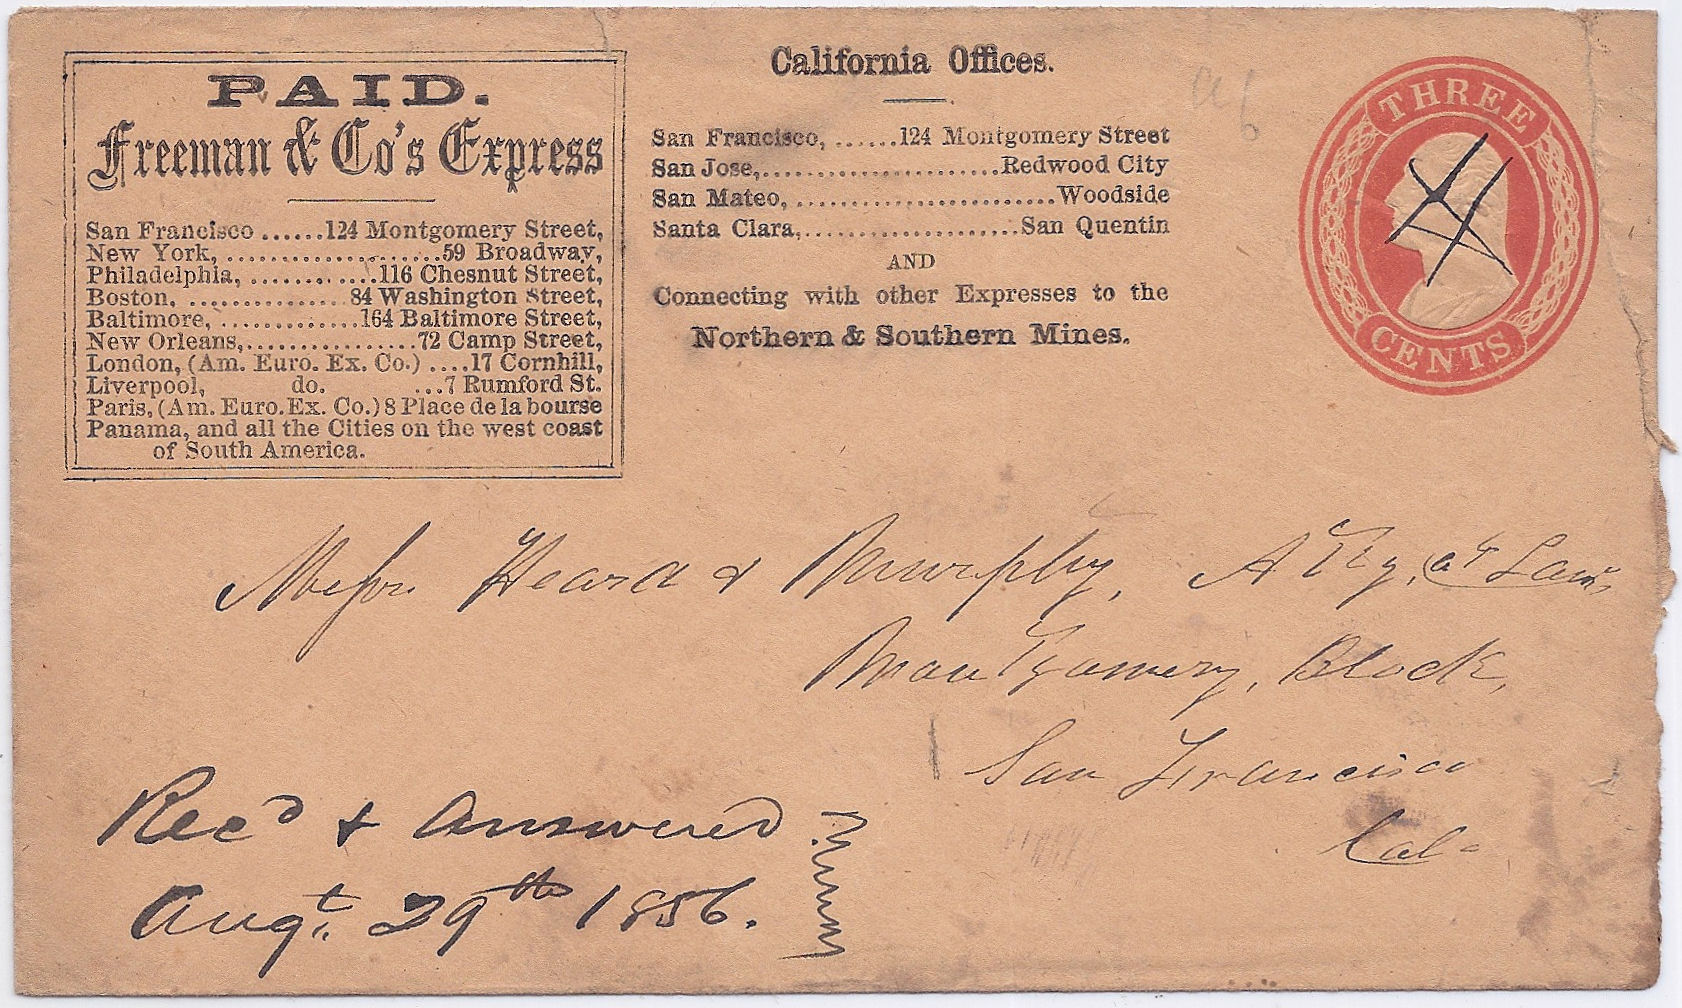 PAID.
Freeman & Co's Express
San Francisco ......124 Montgomery Street,
New York, .....................59 Broadway,
Philadelphia, .............116 Chesnut Street,
Boston, ...............84 Washington Street,
Baltimore, .............164 Baltimore Street,
New Orleans,................72 Camp Street,
London, (Am. Euro. Ex. Co.) ....17 Cornhill,
Liverpool, do. ...7 Rumford St.
Paris, (Am. Euro. Ex. Co.) 8 Place de la bourse
Panama, and all the Cities on the west coast
of South America.
California Offices.
San Francisco, ......124 Montgomery Street
San Jose,.......................Redwood City
San Mateo, .........................Woodside
Santa Clara,.....................San Quentin
AND
Connecting with other Expresses to the
Northern & Southern Mines.
THREE
CENTS
Messrs. Heard & Murphy, Atty. at Law,
Montgomery, Block,
San Francisco
Cal
Recd & Answered
Augt. 29th 1856.